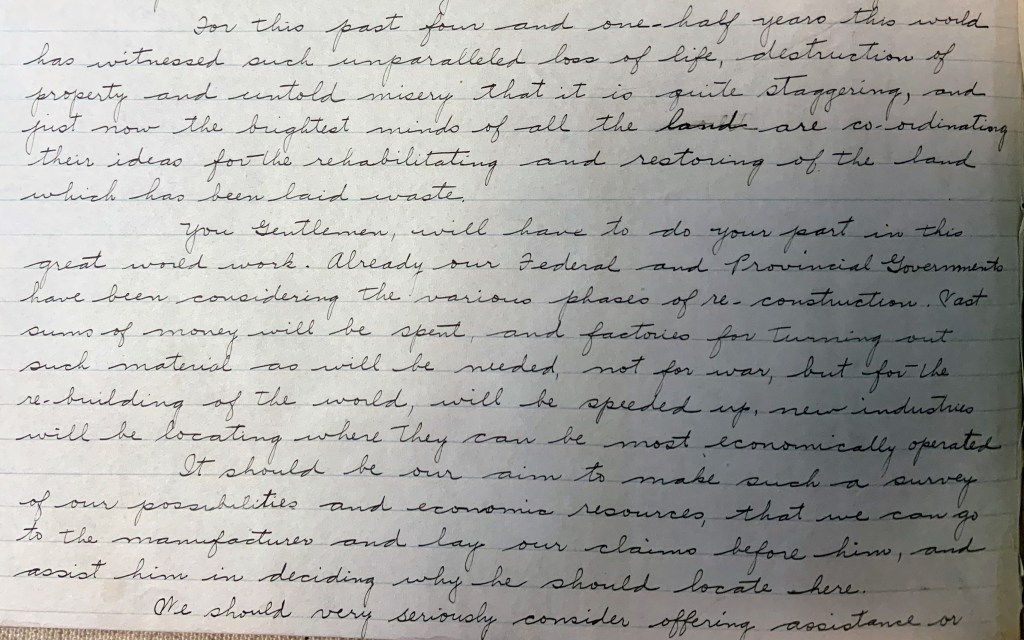 For this past four and one-half years this world
has witnessed such unparalleled loss of life, destruction of
property and untold misery that it is quite staggering, and
just now the brightest minds of all the land are co-ordinating
their ideas for the rehabilitating and restoring of the land
which has been laid waste.
You Gentlemen, will have to do your part in this
great world work. Already our Federal and Provincial Governments
have been considering the various phases of re-construction. Vast
sums of money will be spent, and factories for turning out
such material as will be needed, not for war, but for the
re-building of the world, will be speeded up, new industries
will be locating where they can be most economically operated
It should be our aim to make such a survey
of our possibilities and economic resources, that we can go
to the manufacturer and lay our claims before him, and
assist him in deciding why he should locate here.
We should very seriously consider offering assistance or